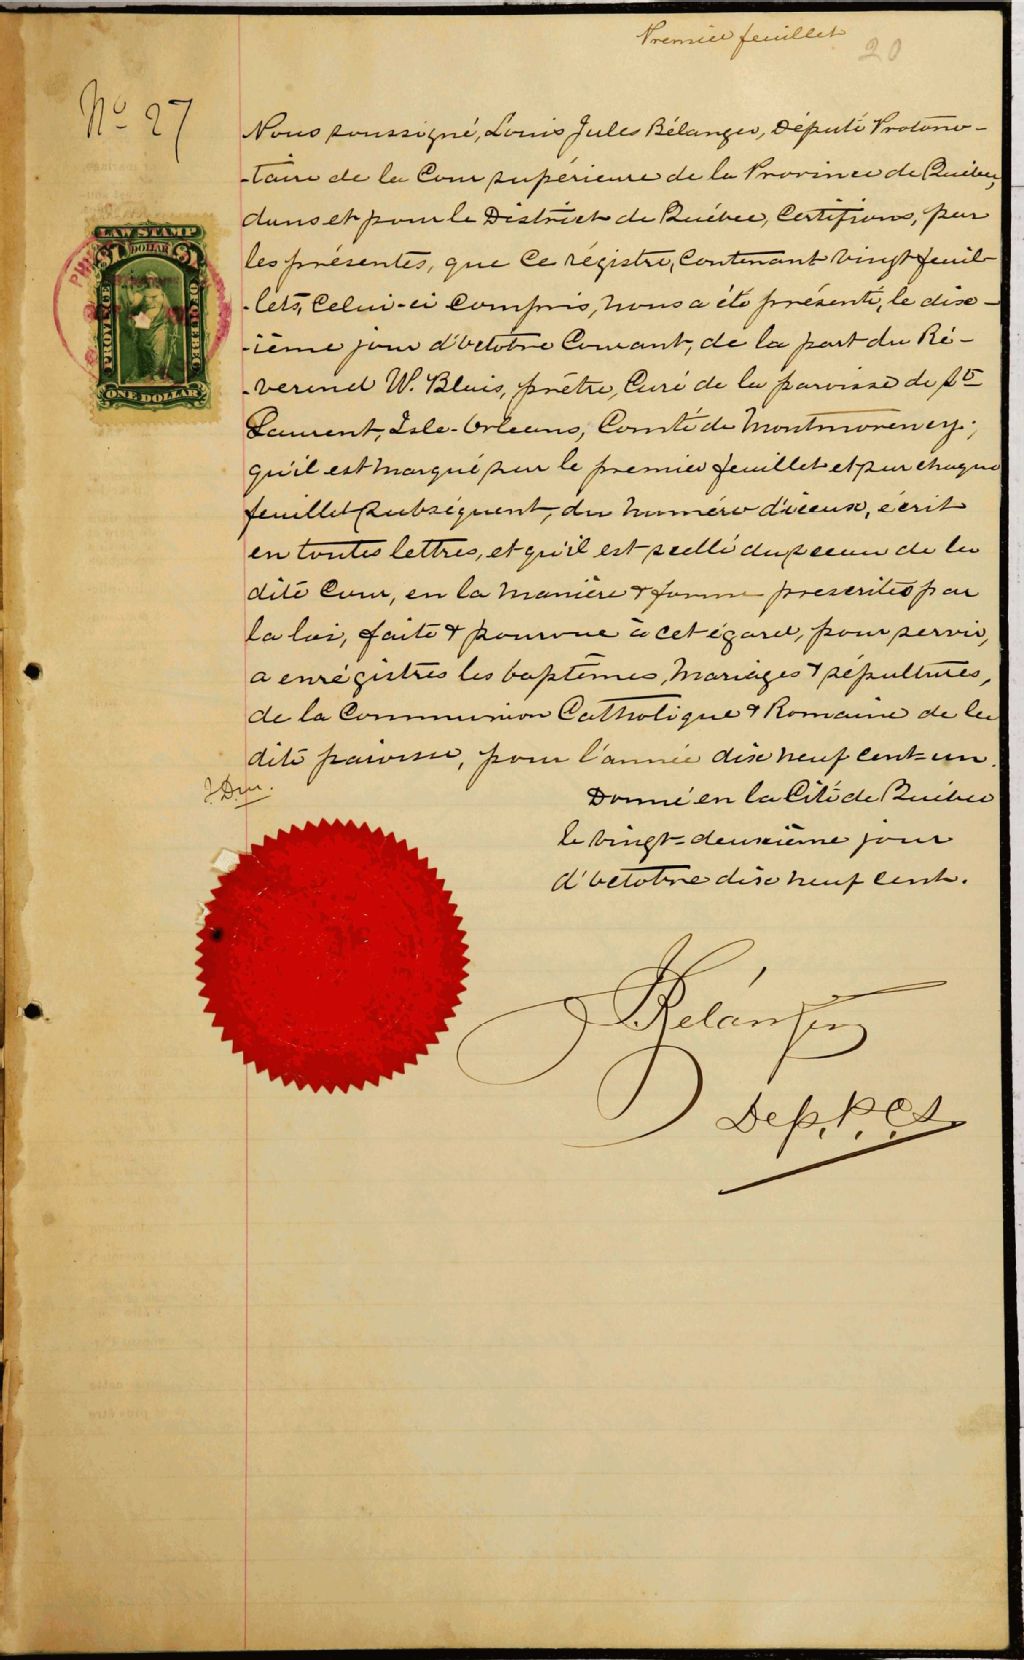 Premier feuillet
20
No 27
Nous soussigné, Louis Jules Bélanger, Député Protono-
-taire de la Cour supérieure de la Province de Québec,
dans et pour le District de Québec, Certifions, par
les présentes, que ce régistre, contenant vingt feuil-
-lets, celui-ci compris, nous a été présenté, le dix-
-ième jour d'octobre Courant, de la part du Ré-
-verend W. Blais, prêtre, Curé de la paroisse de St
Laurent, Isle-Orleans, Comté de Montmorency;
qu'il est marqué sur le premier feuillet et sur chaque
feuillet subséquent, du numéro d'iceux, écrit
en toutes lettres, et qu'il est scellé du sceau de la
dite Cour, en la manière & forme prescrites par
la loi, faite & pourvue à cet égard, pour servir,
a enrégistrés les baptêmes, mariages & sépultures,
de la Communion Catholique & Romaine de la
dite paroisse, pour l'année dix neuf cent-un.
Donné en la Cité de Québec
le vingt-deuxième jour
d'octobre dix neuf cent.
Bélanger
Dep. P. C. S.
LAW STAMP
1 DOLLAR 1
PROVINCE
OF QUEBEC
ONE DOLLAR